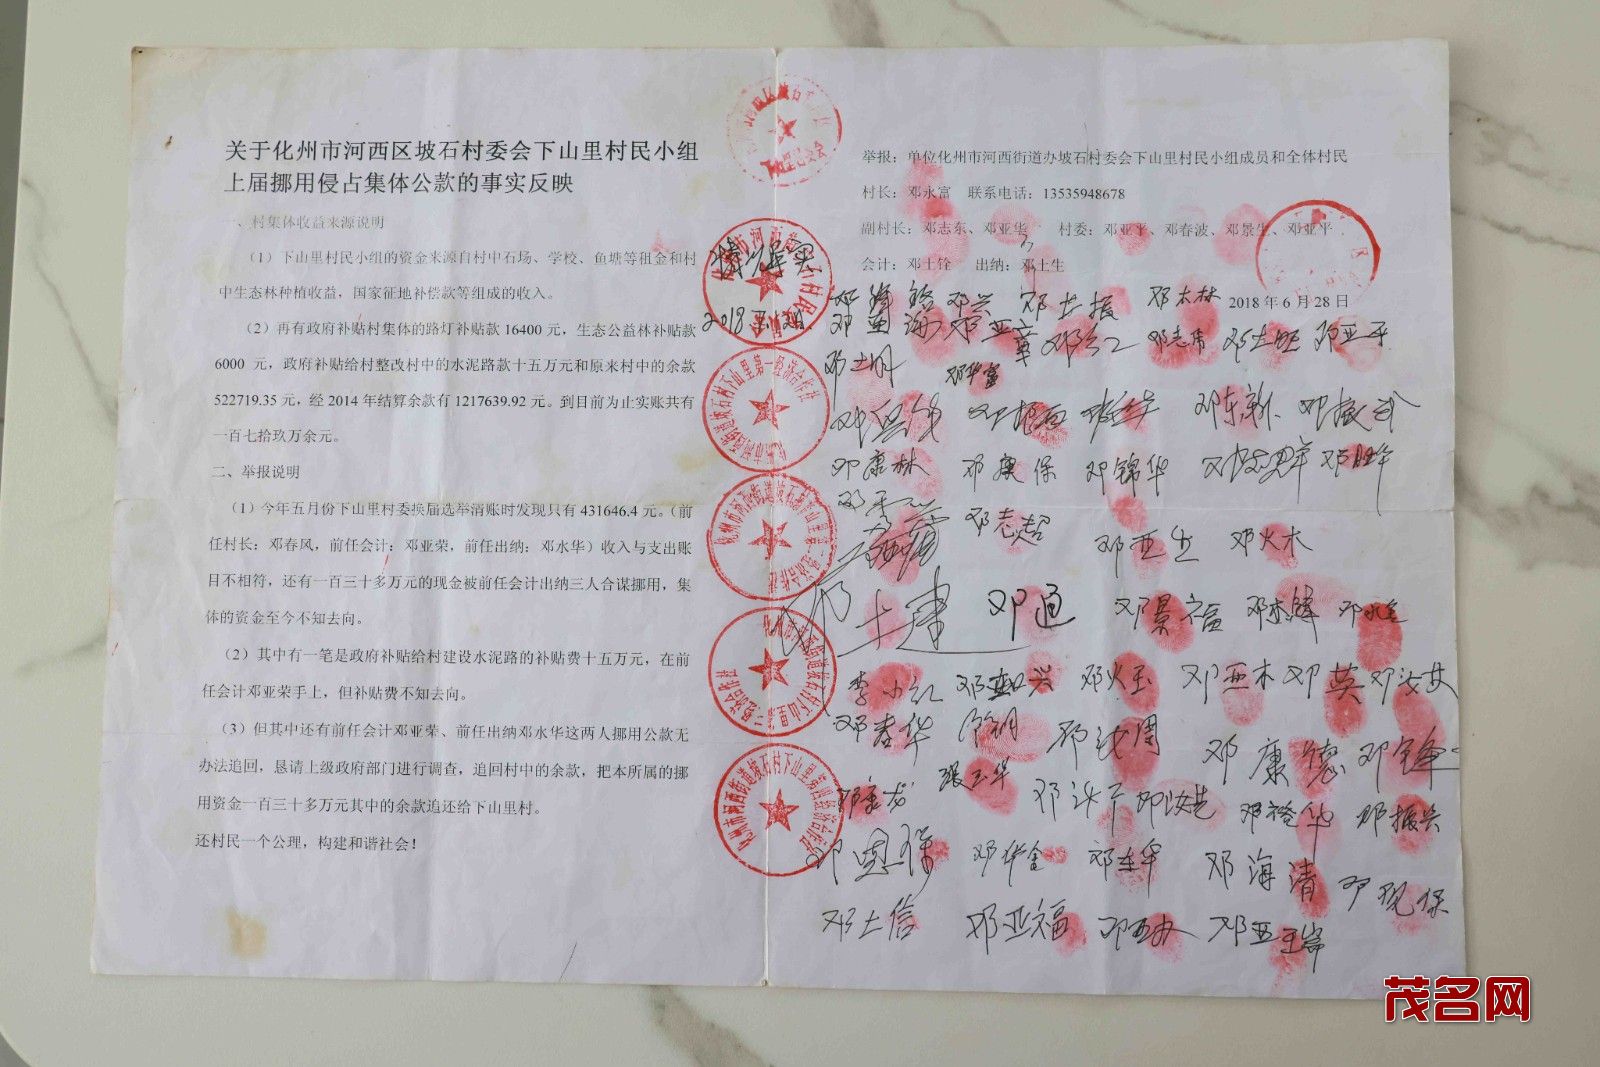 关于化州市河西区坡石村委会下山里村民小组
上届挪用侵占集体公款的事实反映
一、村集体收益来源说明
（1）下山里村民小组的资金来源自村中石场、学校、鱼塘等租金和村
中生态林种植收益，国家征地补偿款等组成的收入。
（2）再有政府补贴村集体的路灯补贴款 16400 元，生态公益林补贴款
6000 元，政府补贴给村整改村中的水泥路款十五万元和原来村中的余款
522719.35 元，经 2014 年结算余款有 1217639.92 元。到目前为止实账共有
一百七拾玖万余元。
二、举报说明
（1）今年五月份下山里村委换届选举清账时发现只有 431646.4 元。（前
任村长：邓春风，前任会计：邓亚荣，前任出纳：邓水华）收入与支出账
目不相符，还有一百三十多万元的现金被前任会计出纳三人合谋挪用，集
体的资金至今不知去向。
（2）其中有一笔是政府补贴给村建设水泥路的补贴费十五万元，在前
任会计邓亚荣手上，但补贴费不知去向。
（3）但其中还有前任会计邓亚荣、前任出纳邓水华这两人挪用公款无
办法追回，恳请上级政府部门进行调查，追回村中的余款，把本所属的挪
用资金一百三十多万元其中的余款追还给下山里村。
还村民一个公理，构建和谐社会！
举报：单位化州市河西街道办坡石村委会下山里村民小组成员和全体村民
村长：邓永富 联系电话：13535948678
副村长：邓志东、邓亚华 村委：邓亚平、邓春波、邓景生、邓亚平
会计：邓士铨 出纳：邓土生
2018 年 6 月 28 日
邓兴 邓世振 邓木林
邓亚章 邓志伟 邓亚平
邓士明 邓华富
邓东新 邓振武
邓康林 邓奥保 邓锦华
邓志超 邓亚生 邓火木
邓土建 邓通 邓景福 邓杰锋
李小红 邓火玉 邓亚木 邓英
邓春华 邓康德 邓锋
张玉华 邓裕华 邓振兴
邓恩保 邓华金 邓海清 邓观保
邓土信 邓亚福
化州市河西街道坡石村下山里第一经济合作社
化州市河西街道坡石村下山里第二经济合作社
化州市河西街道坡石村下山里第三经济合作社
化州市河西街道坡石村下山里第四经济合作社
茂名网